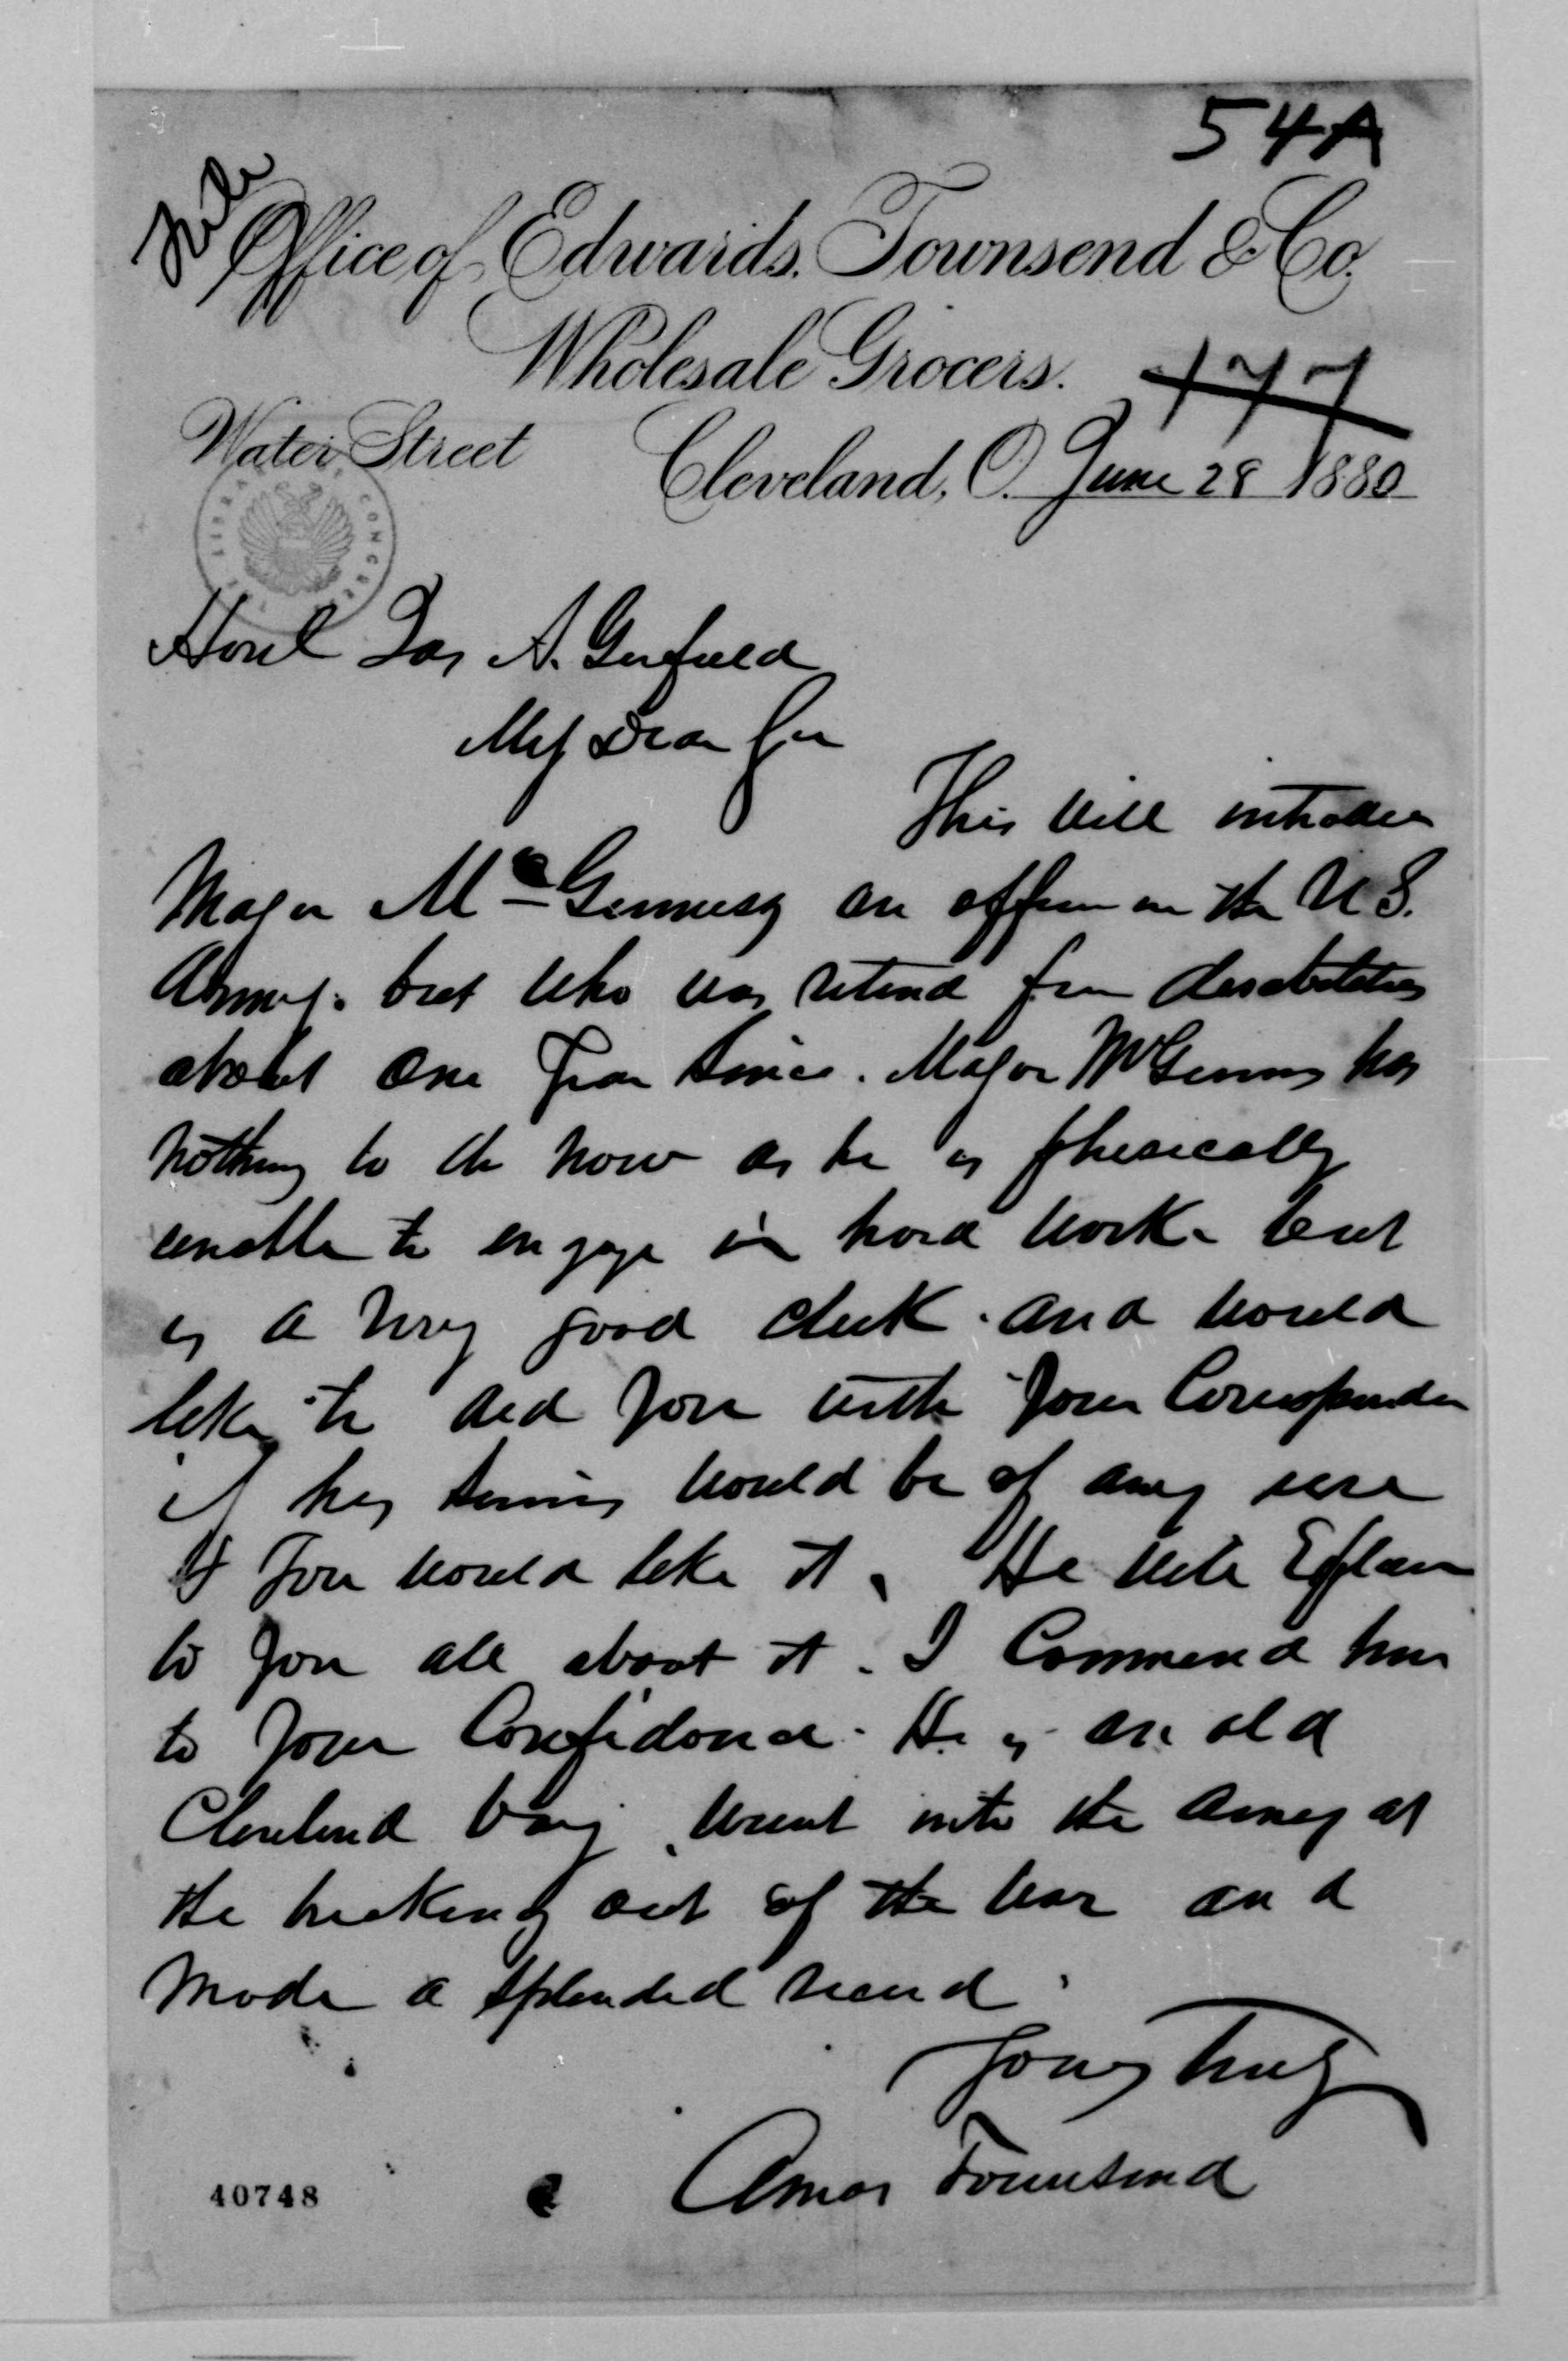 54A
File
Office of Edwards, Townsend & Co.
Wholesale Grocers.
177
Water Street
Cleveland, O. June 28 1880
LIBRARY OF CONGRESS
Honl Jas A. Garfield
My Dear Sir
This will introduce
Major McGinness an officer in the U.S.
Army. but who was retired from disabilities
about one year since. Major McGinness has
nothing to do now as he is phesically
unable to engage in hard work. but
is a very good clerk. and would
like to aid you with your Correspondence
if his services would be of any use
If you would like it. He will Explain
to you all about it. I Commend him
to your Confidence. He is an old
Cleveland boy. went into the army at
the breaking out of the war and
made a splended record.
Yours Truly
Amos Townsend
40748